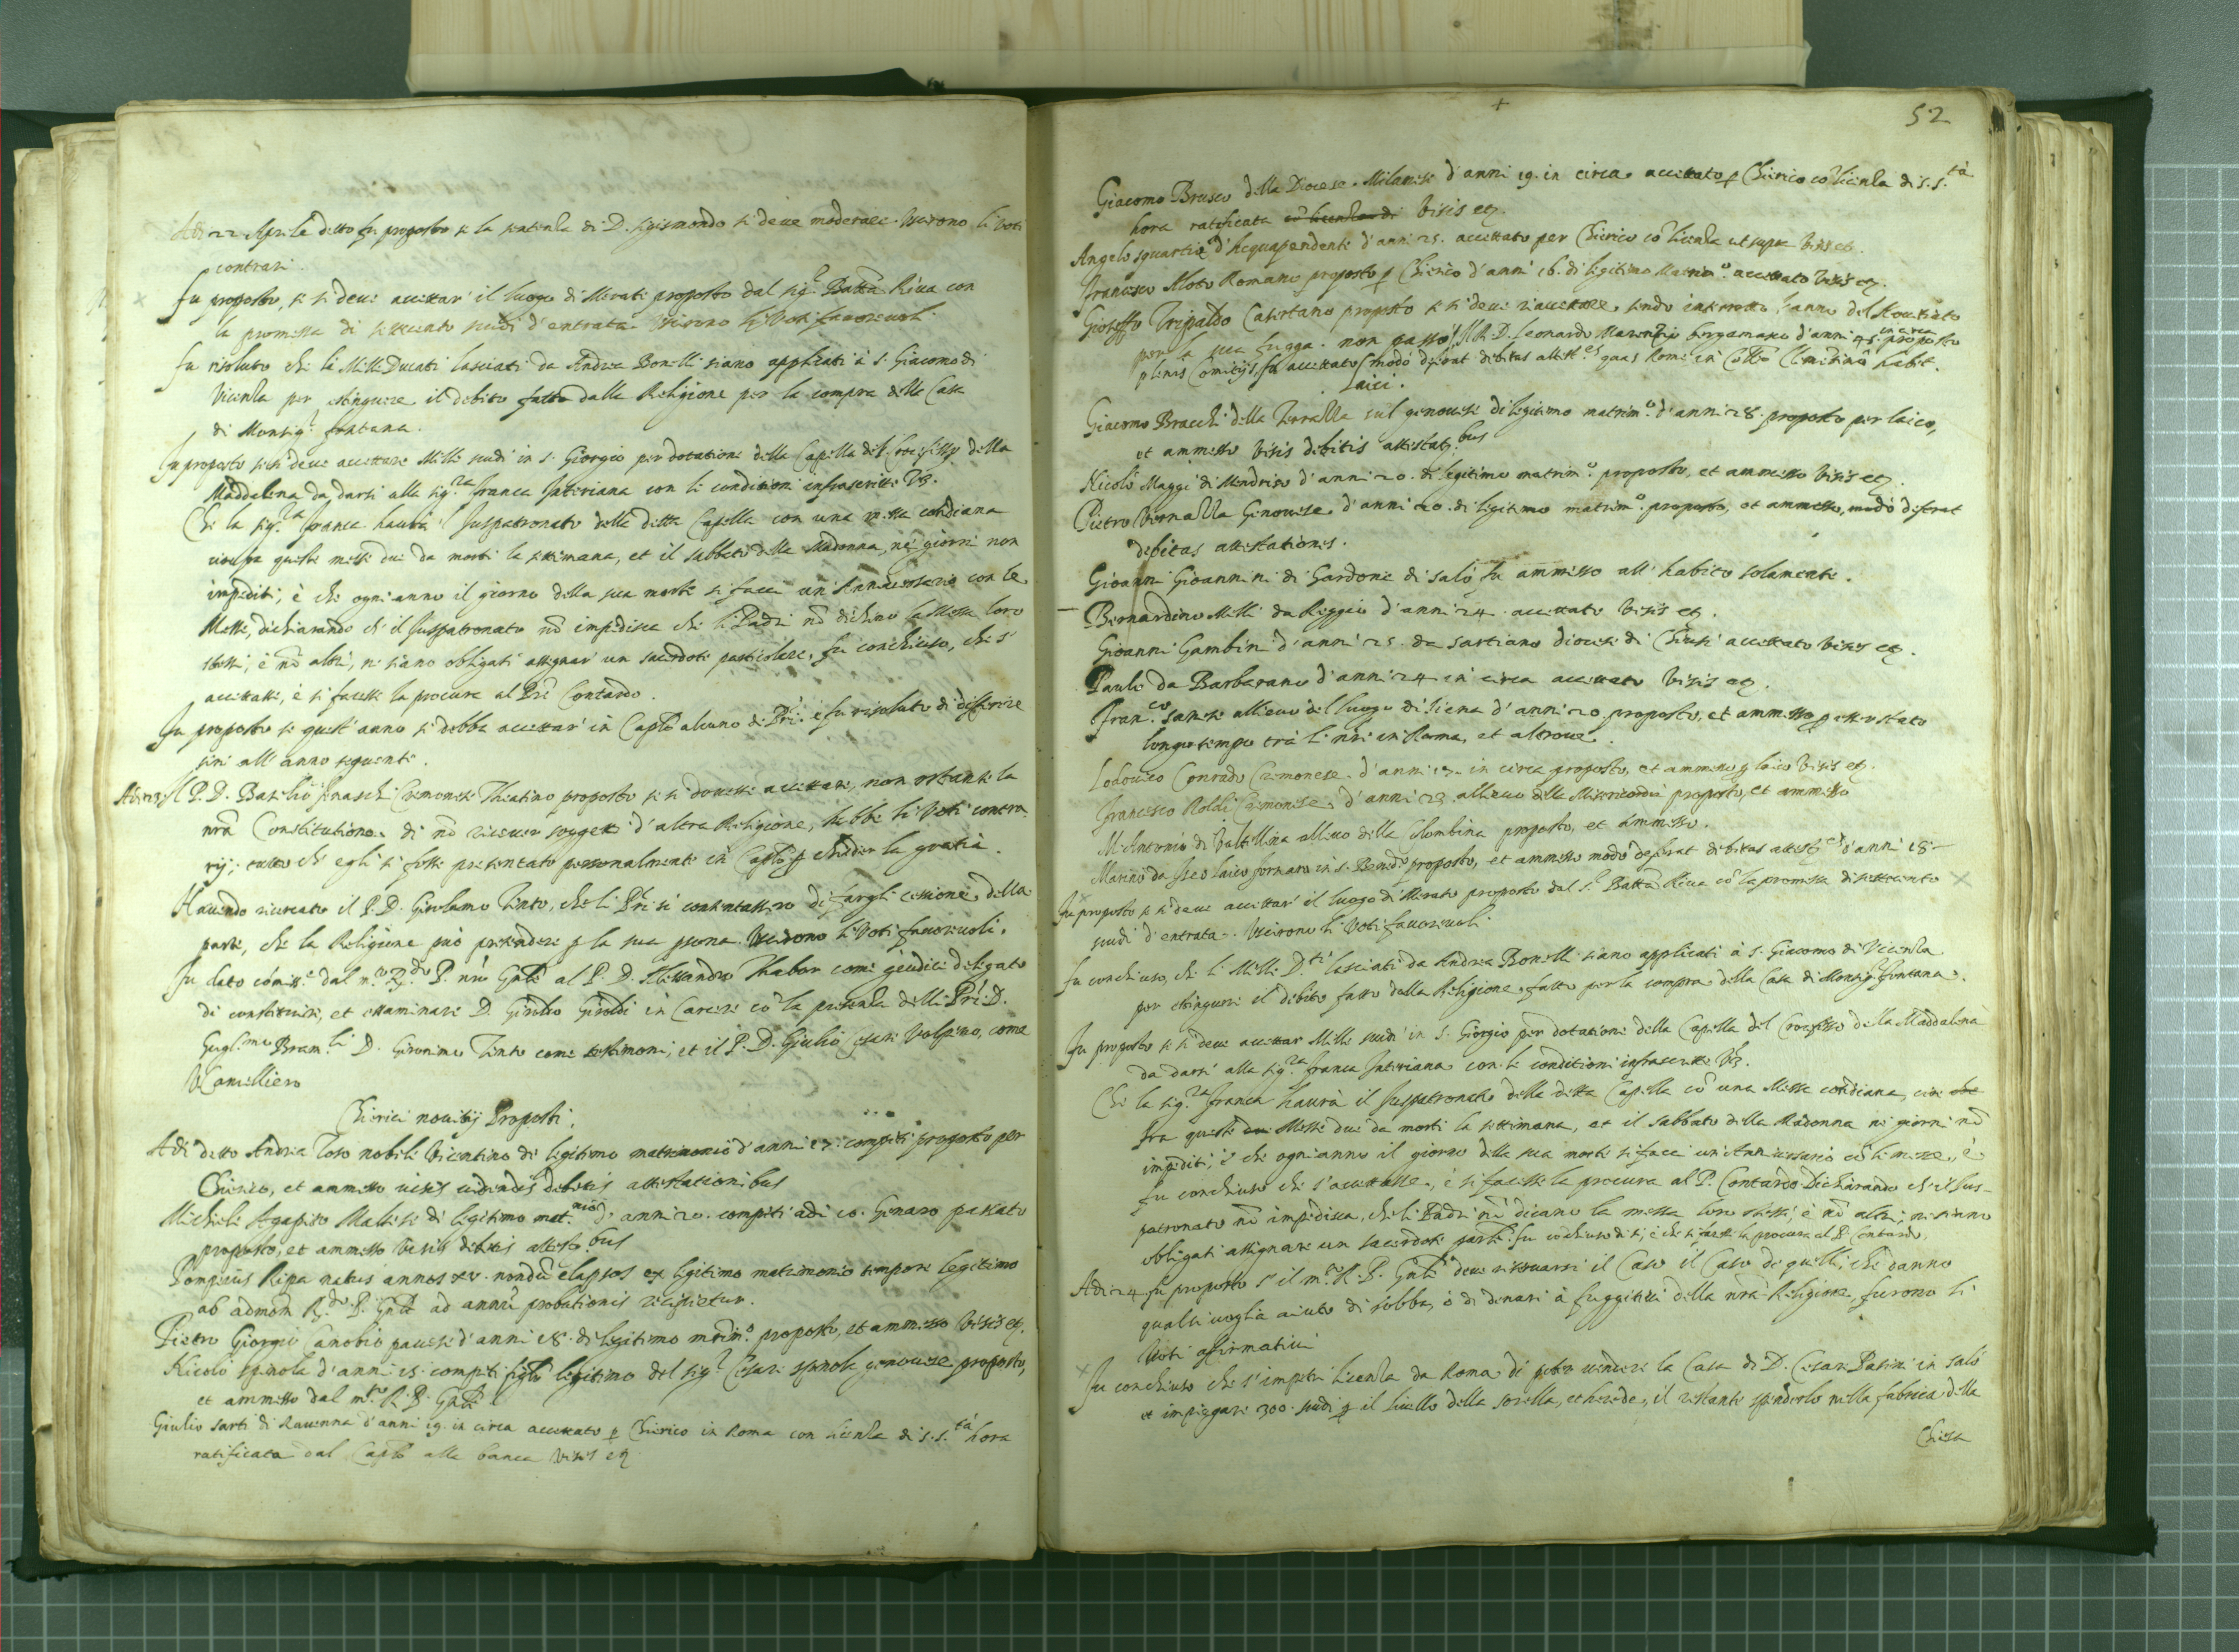 Adi 22 Aprile detto fu proposto se la sentenla di D. sigismondo si deve moderare. Uscirono li Voti
contrari.
fu proposto, se si deve accettar' il luogo di Merati proposto dal sig.r Batta Riva con
la promessa di settecento scudi d'entrata. Uscirono li Voti favorevoli.
fu risoluto che li Mille Ducati lasciati da Andrea Bonelli siano applicati à S. Giacomo di
Vicenla per estinguere il debito fatto dalla Religione per la compra della Casa
di Monsig.r fontana.
Fu proposto se si deve accettare Mille scudi in S. Giorgio per dotatione della Capella del Crocifisso della
Maddalena da darsi alla sig.ra franca Interiana con le conditioni infrascritte Vz.
Che la sig.ra franca haurà l' Juspatronato della detta Capella con una messa cotidiana
queste messe due da morti la settimana, et il sabbato della Madonna, nei giorni non
impediti, è che ogni anno il giorno della sua morte si facci un' Anniversario con le
Messe, dichiarando ch' il Juspatronato nõ impedisca che li Padri nõ dichino la Messa loro
stessi, è nõ altri, ne siano obligati assignar' un sacerdote particolare. fu conchiuso, che s'
accettasse, è si facesse la procura al Prē Contardo.
Fu proposto se quest' anno si debba accettar' in Caplõ alcuno de Pri. e fu risoluto di differire
sin' all' anno seguente.
Adi 23 Il P. D. Basilio Cremonese Theatino proposto se si dovesse accettare, non ostante la
nrã Constitutione di nõ ricever soggetti d'altra Religione, hebbe li Voti contra-
rij; tutto che egli si fosse presentato personalmente in Caplõ p chieder la gratia.
Havendo ricercato il P. D. Girolamo Tinto, che li Pri si contentassero di fargli cessione della
parte, che la Religione può pretendere p la sua psona. Uscirono li Voti favorevoli.
Fu dato cōmiss.e dal m.to R.do P. nrõ Gnãle al P. D. Alessandro Thabor come giudice delegato
di constituire, et essaminare D. Giulio Giroldi in Carcere cō la presenla delli Pri D.
Gugl.mo Bram.li D. Gironimo Tinto come testimoni, et il P. D. Giulio Cesare Volpino, come
Cancelliero
Chierici novitij Proposti.
Adi detto Andrea Toso nobile Vicentino di legitimo matrimonio d'anni 17. compiti proposto per
Chierico, et ammesso visis videndis debitis attestationibus
Michiele Agapito Maltese di legitimo mat.nio d' anni 20. compiti adi 10. Genaro passato
proposto, et ammesso visis debitis attestat.bus
Pompeius Ripa natus annos xv. nondũ elapsos ex legitimo matrimonio tempore legitimo
ab admõn R.do P. Gnãle ad annũ probationis recipietur.
Pietro Giorgio Canobio pavese d'anni 18. di legitimo mrim.o proposto, et ammesso Visis etz.
Nicolò spinola d'anni 15. compiti figlio legitimo del sig.r Cesare spinola genovese proposto,
et ammesso dal m.to R. P. Gnãle
Giulio sarti di Ravenna d'anni 19. in circa accettato p Chierico in Roma con licenla di S. S.tà hora
ratificata dal Caplõ alla banca Visis etz
52
Giacomo Brusco della Diocese Milanese d'anni 19. in circa accettato p Chierico cō licenla di S. S.tà
hora ratificata Visis etz.
Angelo squartia d'Acquapendente d'anni 25. accettato per Chierico cō licenla ut supra Visis etz.
Francesco Moto Romano proposto p Chierico d'anni 16. di legitimo Matrim.o accettato Visis etz.
Gioseffo Tripaldo Casertano proposto se si deve riaccettare, sendo interrotto l'anno del Novitiato
per la sua fugga. non passò. Il R. D. Leonardo bergamasco d'anni 45. in circa proposto
plenis Comitijs, fu accettato modò deferat debitas attest.es quas Rome in Collo Clementino habet.
Laici.
Giacomo Bracchi della Terralla sul genovese di legitimo matrim.o d'anni 28. proposto per laico,
et ammesso visis debitis attestat.bus
Nicolò Maggi di Mendrisio d'anni 20. di legitimo matrim.o proposto, et ammesso Visis etz.
Pietro Vernalla Genovese d'anni 20. di legitimo matrim.o proposto, et ammesso, modò deferat
debitas attestationes.
Gioanni Gioannini di Gardone di Salò fu ammesso all' habito solamente.
Bernardino Melli da Reggio d'anni 24. accettato Visis etz.
Gioanni Gambini d'anni 25. da sartiano diocese di Chiusi accettato Visis etz.
Paulo da Barbarano d'anni 24 in circa accettato Visis etz.
Fran.co sanese allievo del luogo di Siena d'anni 20. proposto, et ammesso p esser stato
longo tempo trà li nri in Roma, et altrove.
Lodovico Conrado Cremonese d'anni 17. in circa proposto, et ammesso p laico Visis etz.
Francesco Roldi Cremonese d'anni 23. allievo della Misericordia proposto, et ammesso
M. Antonio di Valtellina allievo della Colombina proposto, et ammesso.
Marino da Iseo laico fornaro in S. Bened.o proposto, et ammesso modò deferat debitas attest.es d'anni 18
Fu proposto se si deve accettar' il luogo di Merate proposto dal S.r Batta Riva cō la promessa di settecento
scudi d'entrata. Uscirono li Voti favorevoli
fu conchiuso, che li Mille D.ti lasciati da Andrea Bonelli siano applicati à S. Giacomo di Vicenla
per estinguere il debito fatto dalla Religione fatto per la compra della Casa di Monsig.r fontana.
Fu proposto se si deve accettar Mille scudi in S. Giorgio per dotatione della Capella del Crocifisso della Maddalena
da darsi alla sig.ra franca Interiana con le conditioni infrascritte Vz.
Che la sig.ra franca haurà il Juspatronato della detta Capella cō una Messa cotidiana, cioè che
fra queste due Messe due da morti la settimana, et il sabbato della Madonna ne giorni nõ
impediti; è che ogni anno il giorno della sua morte si facci un' Anniversario cō le messe, è
fu conchiuso che s'accettasse, è si facesse la procura al P. Contardo Dichiarando ch' il Jus-
patronato nõ impedisca, che li Padri nõ dicano la messa loro stessi, è nõ altri, ne siano
obligati assignare un sacerdote partic.e fu cōchiuso di si, è che si facesse la procura al P. Contardo.
Adi 24 fu proposto s' il m.to R. P. Gnãle deve riservarsi il Caso il Caso di quelli, che danno
qualsivoglia aiuto di robba, ò di denari à fuggitivi della nrã Religione, furono li
Voti affirmativi
Fu conchiuso che s'impetri licenla da Roma di poter vendere la Casa di D. Cesare Pasini in Salò
et impiegare 300. scudi p il livello della sorella, et herede, il restante spenderlo nella fabrica della
Chiesa